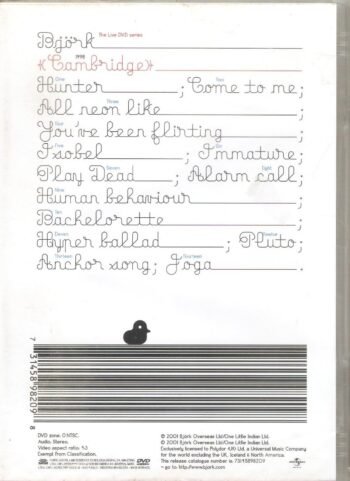 Björk The Live DVD series
1998
«Cambridge»
One Two
Hunter ; Come to me;
Three
All neon like ;
Four
You've been flirting ;
Five Six
Isobel ; Immature;
Seven Eight
Play Dead ; Alarm call;
Nine
Human behaviour ;
Ten
Bachelorette ;
Eleven Twelve
Hyper ballad ; Pluto;
Thirteen Fourteen
Anchor song; Joga .
7 31458 98209 8
DVD zone: 0/NTSC.
Audio: Stereo.
Video aspect ratio: 4:3
Exempt from Classification.
© 2001 Björk Overseas Ltd/One Little Indian Ltd.
© 2001 Björk Overseas Ltd/One Little Indian Ltd.
Exclusively licensed to Polydor (UK) Ltd, a Universal Music Company
for the world excluding the UK, Iceland & North America.
This release catalogue number is 73145898209
– go to http://www.bjork.com
DVD
UNIVERSAL